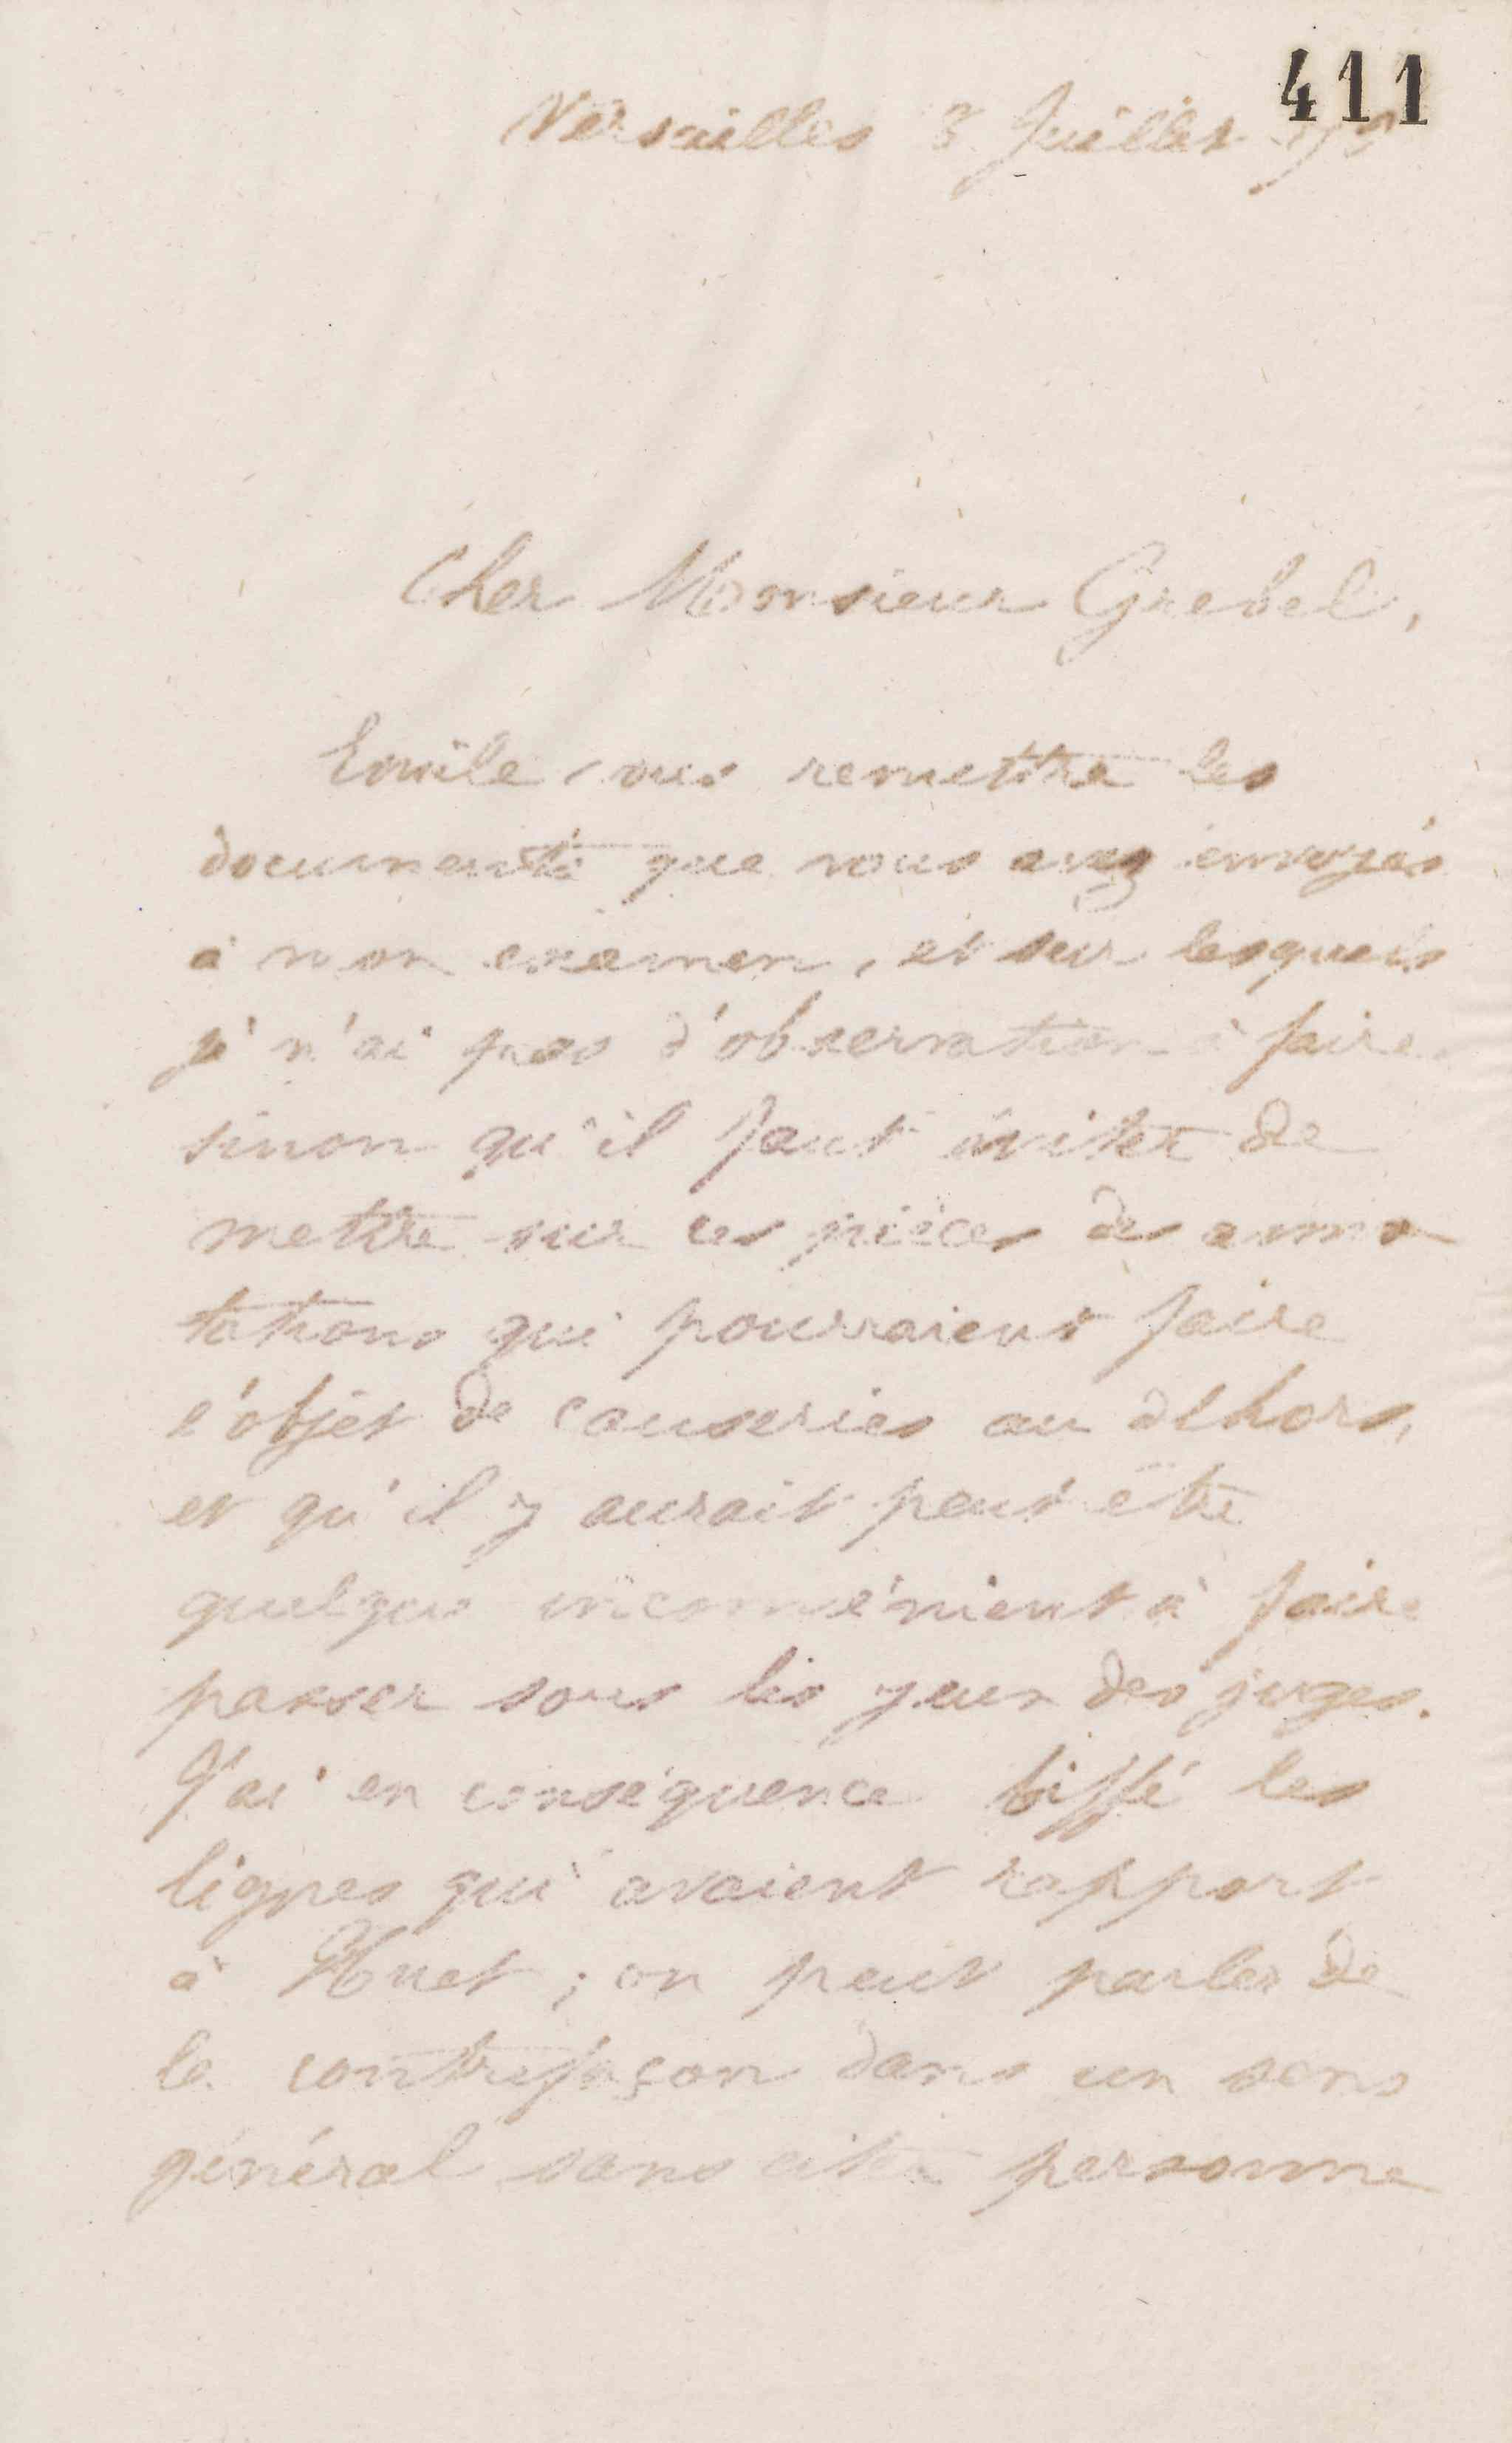 411
Versailles 3 Juillet
Cher Monsieur Grebel,
Emile vous remettra les
documents que vous avez envoyés
à mon examen, et sur lesquels
je n'ai pas d'observation à faire
sinon qu'il faut éviter de
mettre sur ces pièces des anno
tations qui pourraient faire
l'objet de causeries au dehors,
et qu'il y aurait peut être
quelque inconvénient à faire
passer sous les yeux des juges.
J'ai en conséquence biffé les
lignes qui avaient rapport
à Huet ; on peut parler de
la contrefaçon dans un sens
général sans citer personne